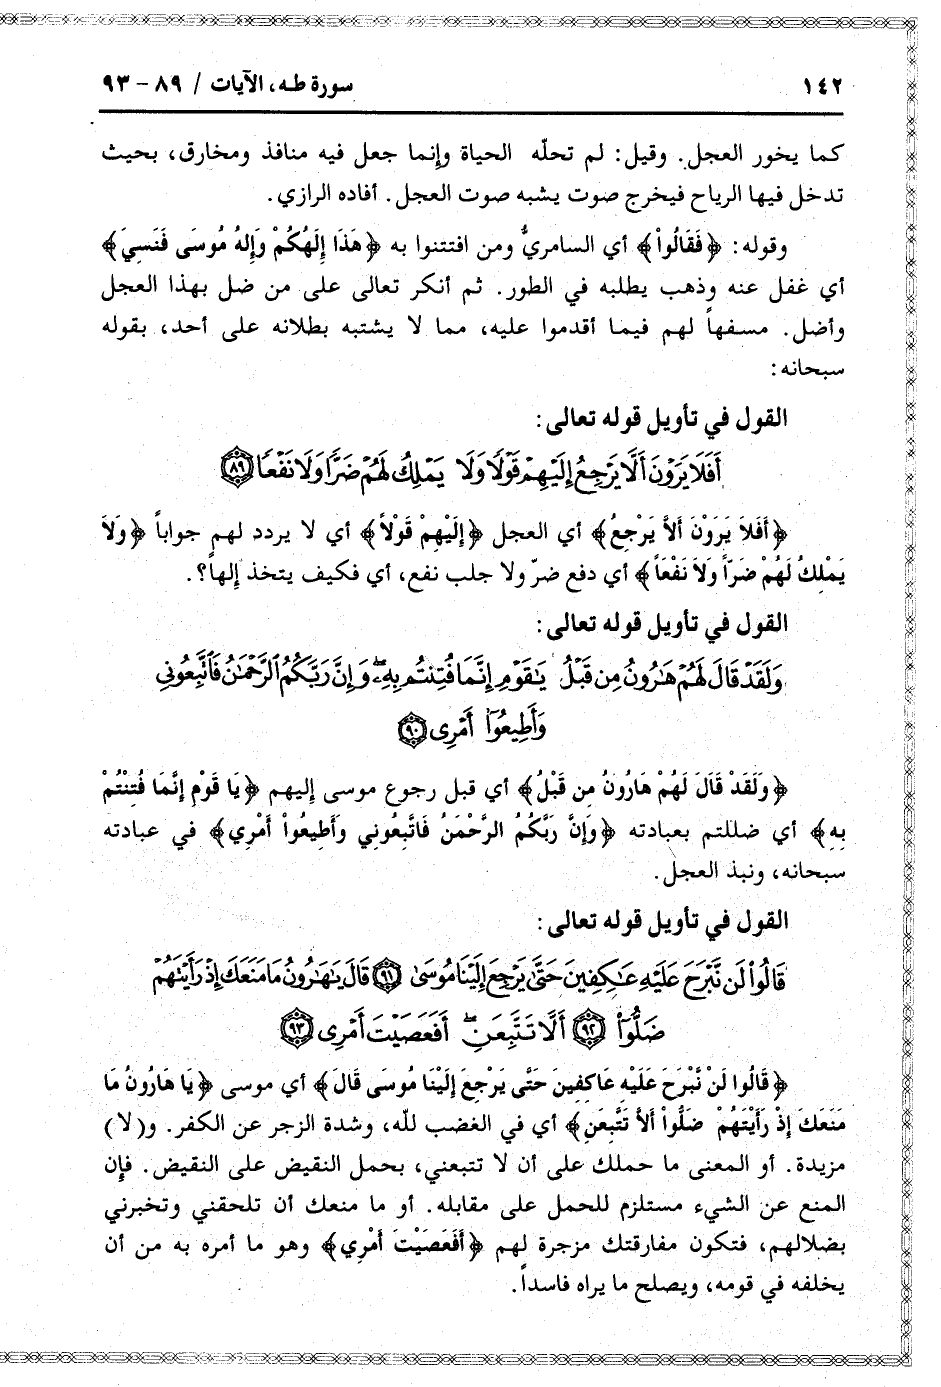 ١٤٢ سورة طه، الآيات / ٨٩ - ٩٣
كما يخور العجل. وقيل: لم تحلّه الحياة وإنما جعل فيه منافذ ومخارق، بحيث
تدخل فيها الرياح فيخرج صوت يشبه صوت العجل. أفاده الرازي.
وقوله: ﴿فَقَالُواْ﴾ أي السامريُّ ومن افتتنوا به ﴿هَذَا إِلَهُكُمْ وَإِلهُ مُوسَى فَنَسِيَ﴾
أي غفل عنه وذهب يطلبه في الطور. ثم أنكر تعالى على من ضل بهذا العجل
وأضل. مسفهاً لهم فيما أقدموا عليه، مما لا يشتبه بطلانه على أحد، بقوله
سبحانه:
القول في تأويل قوله تعالى:
أَفَلَا يَرَوْنَ أَلَّا يَرْجِعُ إِلَيْهِمْ قَوْلًا وَلَا يَمْلِكُ لَهُمْ ضَرًّا وَلَا نَفْعًا ٨٩
﴿أَفَلاَ يَرَوْنَ أَلاَّ يَرْجِعُ﴾ أي العجل ﴿إِلَيْهِمْ قَوْلاً﴾ أي لا يردد لهم جواباً ﴿وَلاَ
يَمْلِكُ لَهُمْ ضَرّاً وَلاَ نَفْعاً﴾ أي دفع ضرّ ولا جلب نفع، أي فكيف يتخذ إلهاً؟.
القول في تأويل قوله تعالى:
وَلَقَدْ قَالَ لَهُمْ هَٰرُونُ مِن قَبْلُ يَٰقَوْمِ إِنَّمَا فُتِنتُم بِهِۦ ۖ وَإِنَّ رَبَّكُمُ ٱلرَّحْمَٰنُ فَٱتَّبِعُونِي
وَأَطِيعُوٓاْ أَمْرِى ٩٠
﴿وَلَقَدْ قَالَ لَهُمْ هَارُونُ مِن قَبْلُ﴾ أي قبل رجوع موسى إليهم ﴿يَا قَوْم إِنَّمَا فُتِنْتُمْ
بِهِ﴾ أي ضللتم بعبادته ﴿وَإِنَّ رَبَّكُمُ الرَّحْمَنُ فَاتَّبِعُونِي وَأَطِيعُواْ أَمْرِي﴾ في عبادته
سبحانه، ونبذ العجل.
القول في تأويل قوله تعالى:
قَالُواْ لَن نَّبْرَحَ عَلَيْهِ عَٰكِفِينَ حَتَّىٰ يَرْجِعَ إِلَيْنَا مُوسَىٰ ٩١ قَالَ يَٰهَٰرُونُ مَا مَنَعَكَ إِذْ رَأَيْتَهُمْ
ضَلُّوٓاْ ٩٢ أَلَّا تَتَّبِعَنِ ۖ أَفَعَصَيْتَ أَمْرِى ٩٣
﴿قَالُوا لَنْ نَّبْرَحَ عَلَيْهِ عَاكِفِينَ حَتَّى يَرْجِعَ إِلَيْنَا مُوسَى قَالَ﴾ أي موسى ﴿يَا هَارُونُ مَا
مَنَعَكَ إِذْ رَأَيْتَهُمْ ضَلُّواْ أَلاَّ تَتَّبِعَنِ﴾ أي في الغضب للّه، وشدة الزجر عن الكفر. و(لا)
مزيدة. أو المعنى ما حملك على أن لا تتبعني، بحمل النقيض على النقيض. فإن
المنع عن الشيء مستلزم للحمل على مقابله. أو ما منعك أن تلحقني وتخبرني
بضلالهم، فتكون مفارقتك مزجرة لهم ﴿أَفَعَصَيْتَ أَمْرِي﴾ وهو ما أمره به من أن
يخلفه في قومه، ويصلح ما يراه فاسداً.